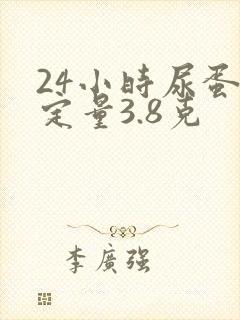 24小時尿蛋
定量3.8克
李廣强